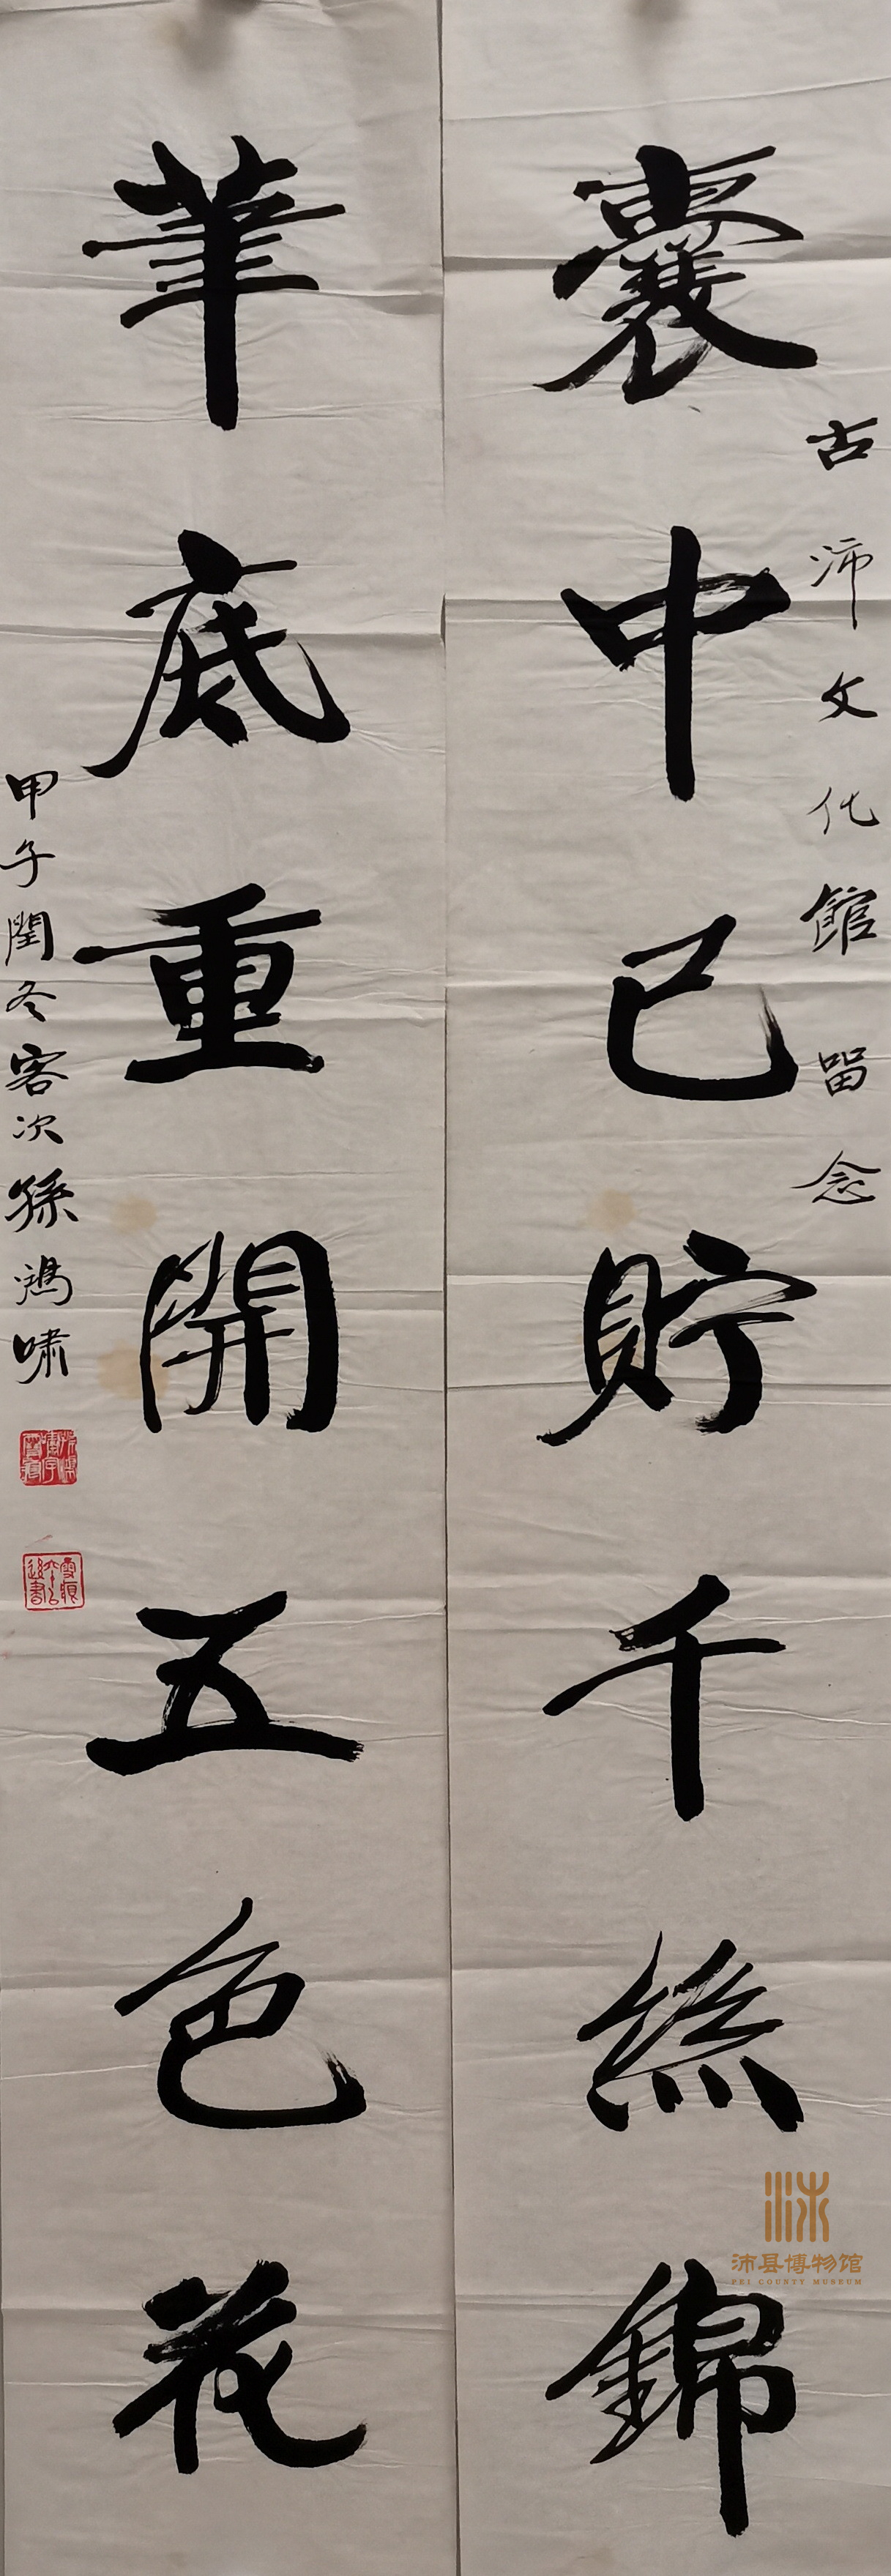 古沛文化館留念
囊中已貯千絲錦
筆底重開五色花
甲子閏冬客次孫鴻嘯
沛县博物馆
PEI COUNTY MUSEUM